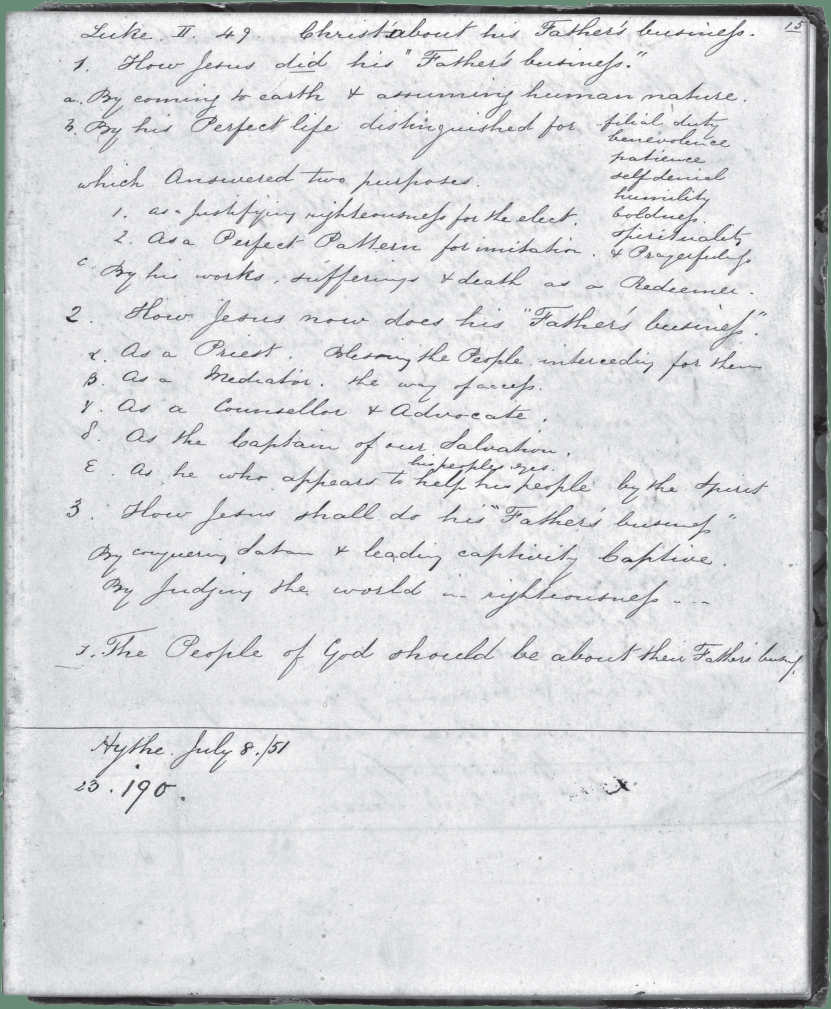 15
Luke. II. 49. Christ about his Father's business.
1. How Jesus did his "Father's business."
a. By coming to earth & assuming human nature.
b. By his Perfect life distinguished for filial duty
benevolence
patience
self denial
humility
boldness.
Spirituality
& Prayerfulness
which Answered two purposes.
1. as a Justifying righteousness for the elect.
2. As a Perfect Pattern for imitation.
c. By his works, sufferings & death as a Redeemer.
2. How Jesus now does his "Father's business".
α. As a Priest. Blessing the People interceding for them
β. As a Mediator. the way of access.
γ. As a Counsellor & Advocate.
δ. As the Captain of our Salvation.
his peoples eyes.
ε. As he who appears to help his people by the Spirit
3. How Jesus shall do his "Father's business"
By conquering Satan & leading captivity Captive.
By Judging the world in righteousness ---
1. The People of God should be about their Father's business.
Hythe. July 8./51
23. 190.